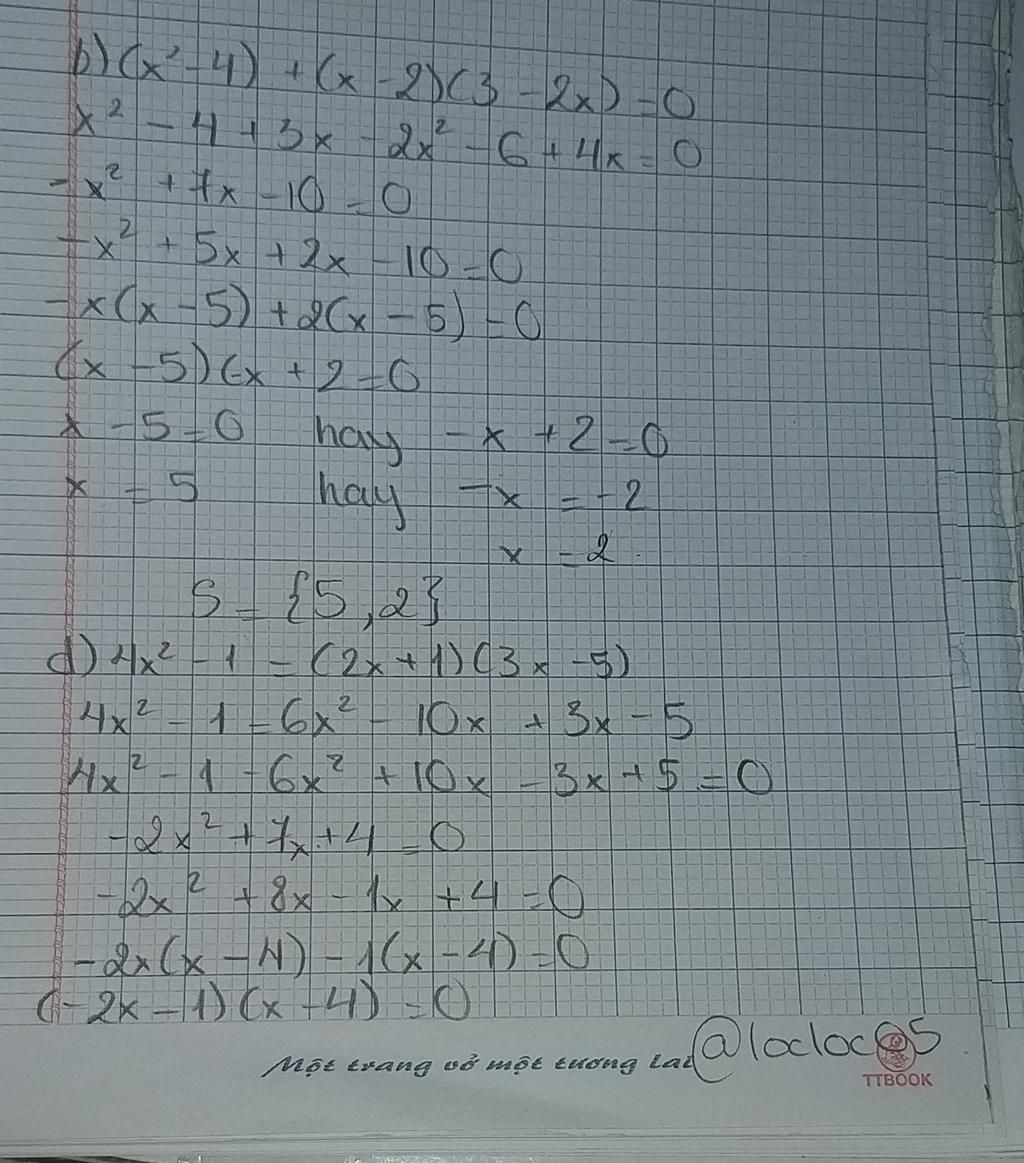 b) (x² - 4) + (x - 2)(3 - 2x) = 0
x² - 4 + 3x - 2x² - 6 + 4x = 0
-x² + 7x - 10 = 0
-x² + 5x + 2x - 10 = 0
-x(x - 5) + 2(x - 5) = 0
(x - 5)(-x + 2 = 0
x - 5 = 0 hay -x + 2 = 0
x = 5 hay -x = -2
x = 2
S = {5, 2}
d) 4x² - 1 = (2x + 1)(3x - 5)
4x² - 1 = 6x² - 10x + 3x - 5
4x² - 1 - 6x² + 10x - 3x + 5 = 0
-2x² + 7x + 4 = 0
-2x² + 8x - 1x + 4 = 0
-2x(x - 4) - 1(x - 4) = 0
(-2x - 1)(x - 4) = 0
Một trang vở một tương lai
TTBOOK